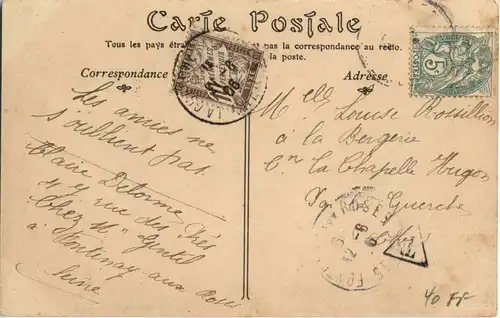 Carte Postale
Tous les pays étra et pas la correspondance au recto.
la poste.
Correspondance
Adresse
Les amies ne
s'oublient pas
Claire Delorme
rue des Prés
Chez Mr Gentil
à Fontenay aux Roses
Seine
Melle Louise Rossillion
à la Bergerie
Cne La Chapelle Hugon
La Guerche
Cher
5c
10
T
40 ff